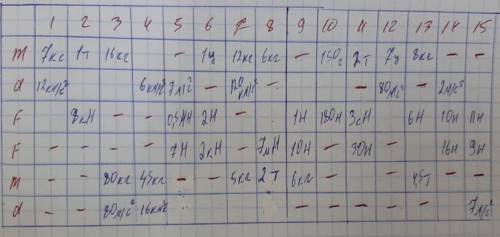 1 2 3 4 5 6 7 8 9 10 11 12 13 14 15
m 7кг 1т 16кг - 1ц 12кг 6кг - 150г 2т 7ц 8кг - -
a 12км/с² - - 6км/с² 7м/с² - - - - - 80м/с² - 2м/с²
F - 8кН - - 2Н - - 1Н 180Н 3сН 6Н 10н
F - - - - 7Н 2кН - 7мН 10Н - 30Н - - 16н 9н
m - - 80кг 45кг - - 5кг 2т 6кг - - - - -
a - - 80м/с² 16км/с² - - - - - - 7м/с²